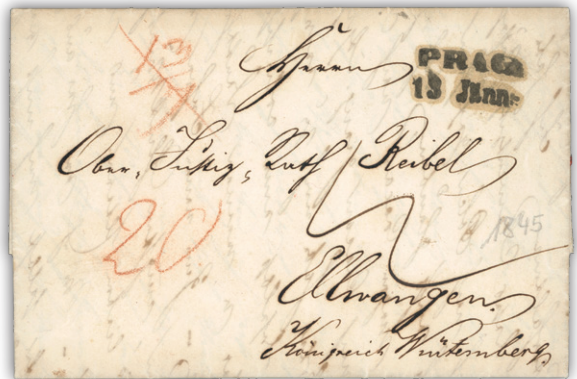 PRAG
13 Jänn:
Herrn
Ober-Justiz-Rath Reibel
20
1845
Ellwangen
Königreich Würtemberg